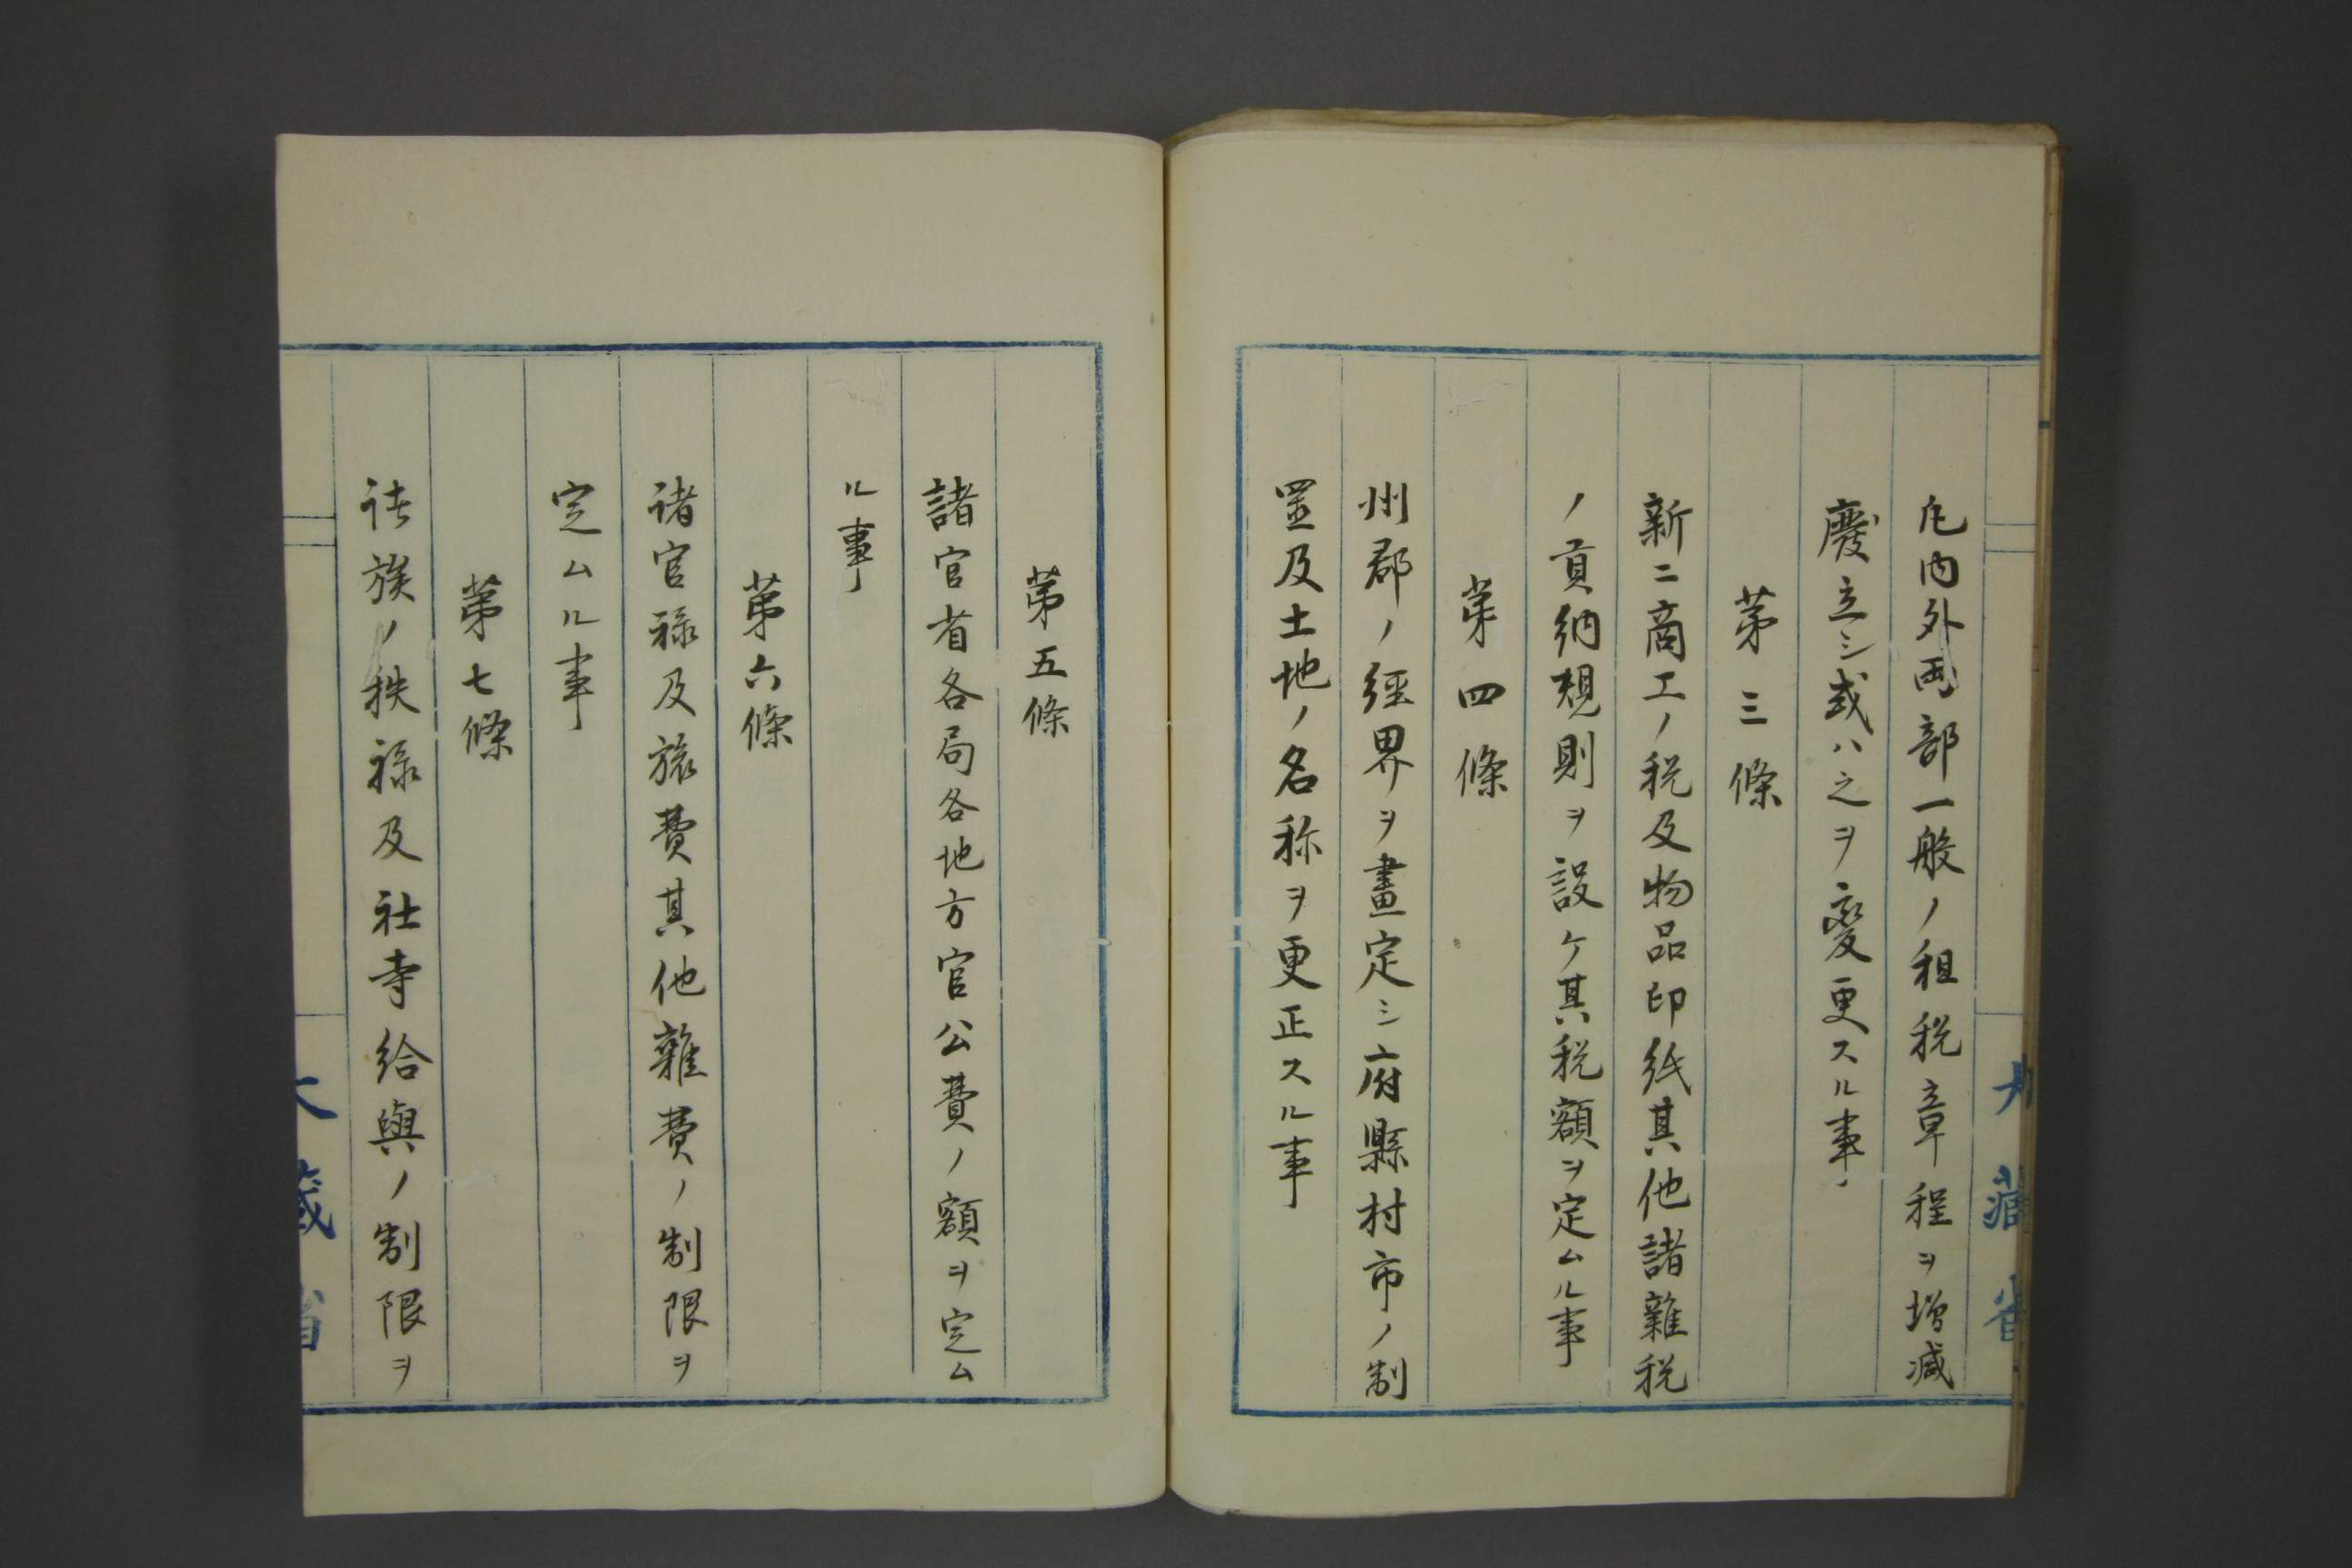 凡内外両部一般ノ租税章程ヲ増減
廢立シ或ハ之ヲ変更スル事
第三條
新ニ商工ノ税及物品印紙其他諸雜税
ノ貢納規則ヲ設ケ其税額ヲ定ムル事
第四條
州郡ノ經界ヲ畫定シ府縣村市ノ制
置及土地ノ名称ヲ更正スル事
大藏省
第五條
諸官省各局各地方官公費ノ額ヲ定ム
ル事
第六條
諸官禄及旅費其他雜費ノ制限ヲ
定ムル事
第七條
諸族ノ秩禄及社寺給與ノ制限ヲ
大藏省